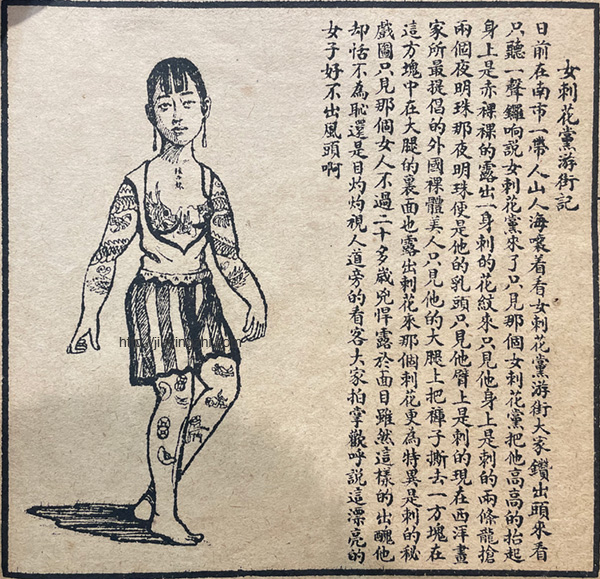 女刺花黨游街記
日前在南市一帶人山人海嚷着看女刺花黨游街大家鑽出頭來看
只聽一聲鑼响説女刺花黨來了只見那個女刺花黨把他高高的抬起
身上是赤裸裸的露出一身刺的花紋來只見他身上是刺的兩條龍搶
兩個夜明珠那夜明珠便是他的乳頭只見他臂上是刺的現在西洋畫
家所最提倡的外國裸體美人只見他的大腿上把褲子撕去一方塊在
這方塊中在大腿的裏面也露出刺花來那個刺花更為特異是刺的秘
戲圖只見那個女人不過二十多歲兇悍露於面目雖然這樣的出醜他
却恬不為恥還是目灼灼視人道旁的看客大家拍掌歡呼説這漂亮的
女子好不出風頭啊